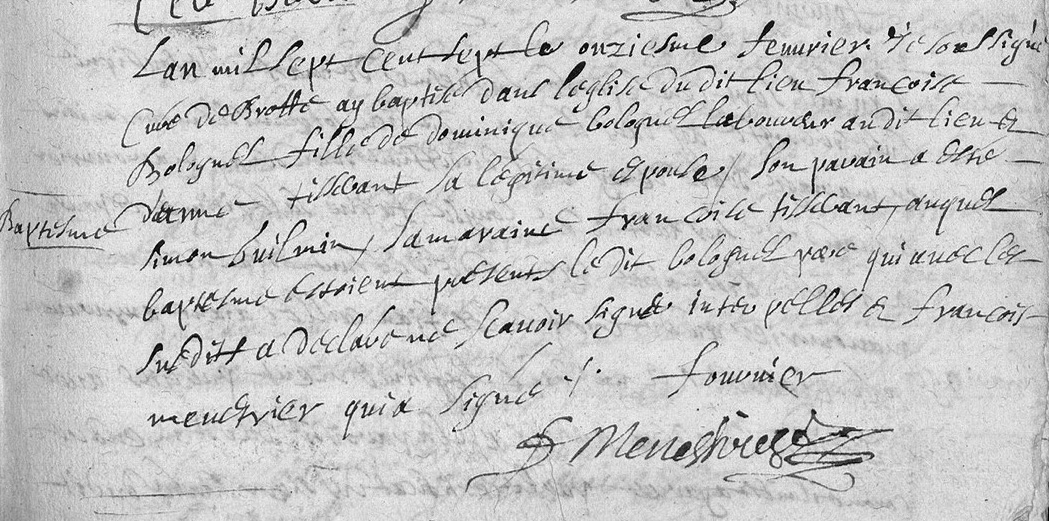 Lan mil sept cent sept le onziesme feuurier Ie soussigné
Curé de Brotte ay baptisé dans leglise du dit lieu francoise
Bolognel fille de dominique bolognel laboureur au dit lieu et
Baptesme
danne tissérant sa légitime espouse / son parain a esté
simon builmin / sa maraine francoise tissérant, auquel
baptesme estoient présents le dit bolognel père qui auec les
susditts a declaré ne scauoir signer interpellés et francois
menetrier qui a signé /.
fournier
f Menestrier